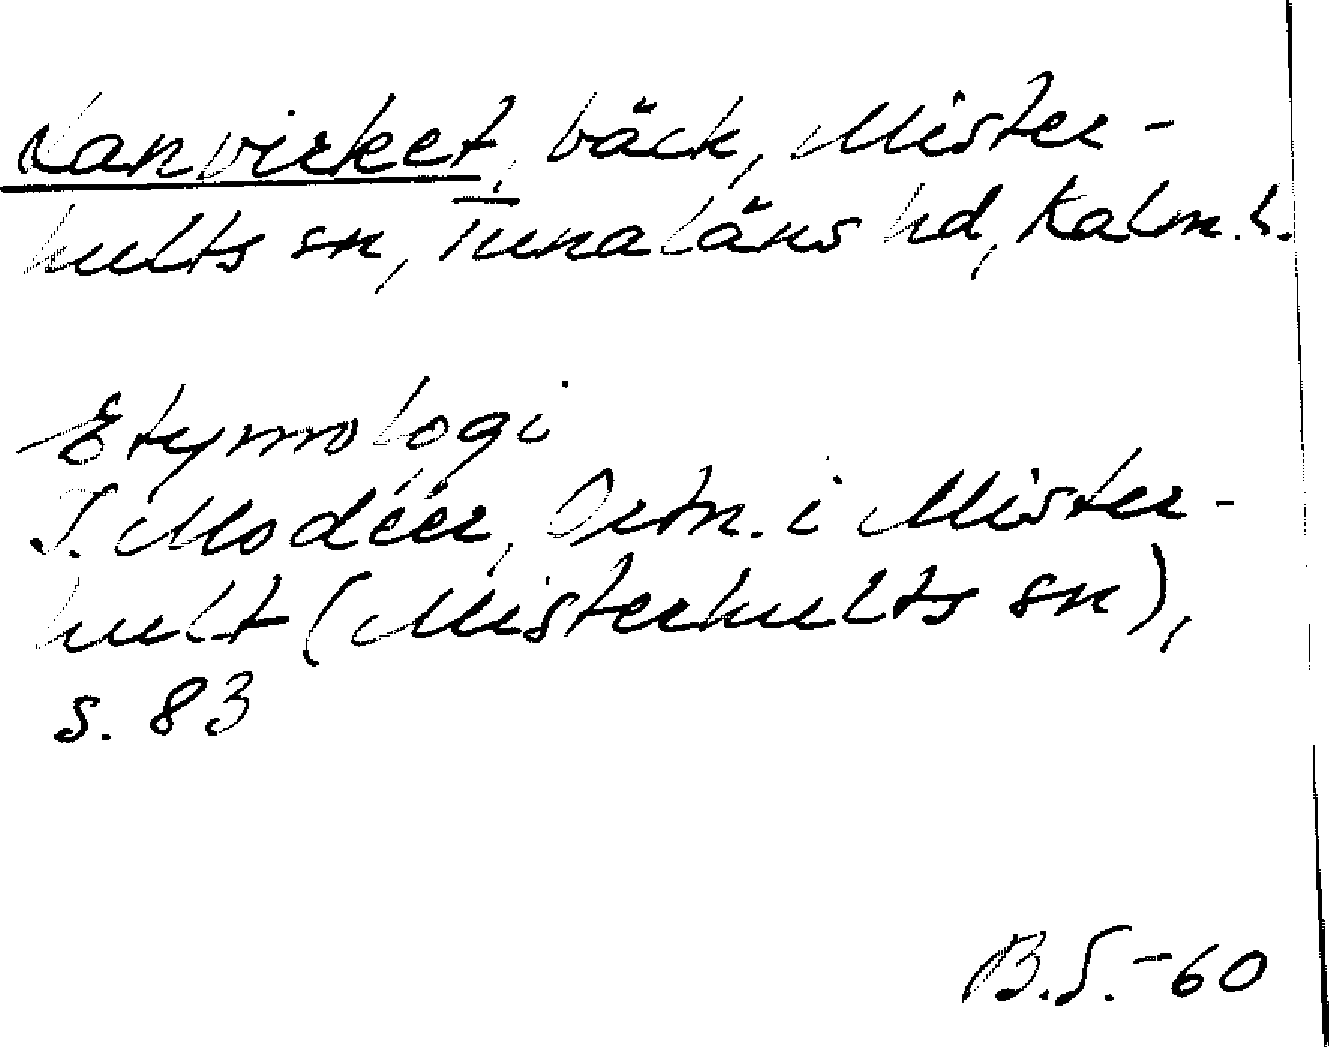 Kanvirket, bäck, Mister-
hults sn, Tunaläns hd, Kalm. l.
Etymologi
I. Modéer, Ortn. i Mister-
hult (Misterhults sn),
s. 83
B.S.-60